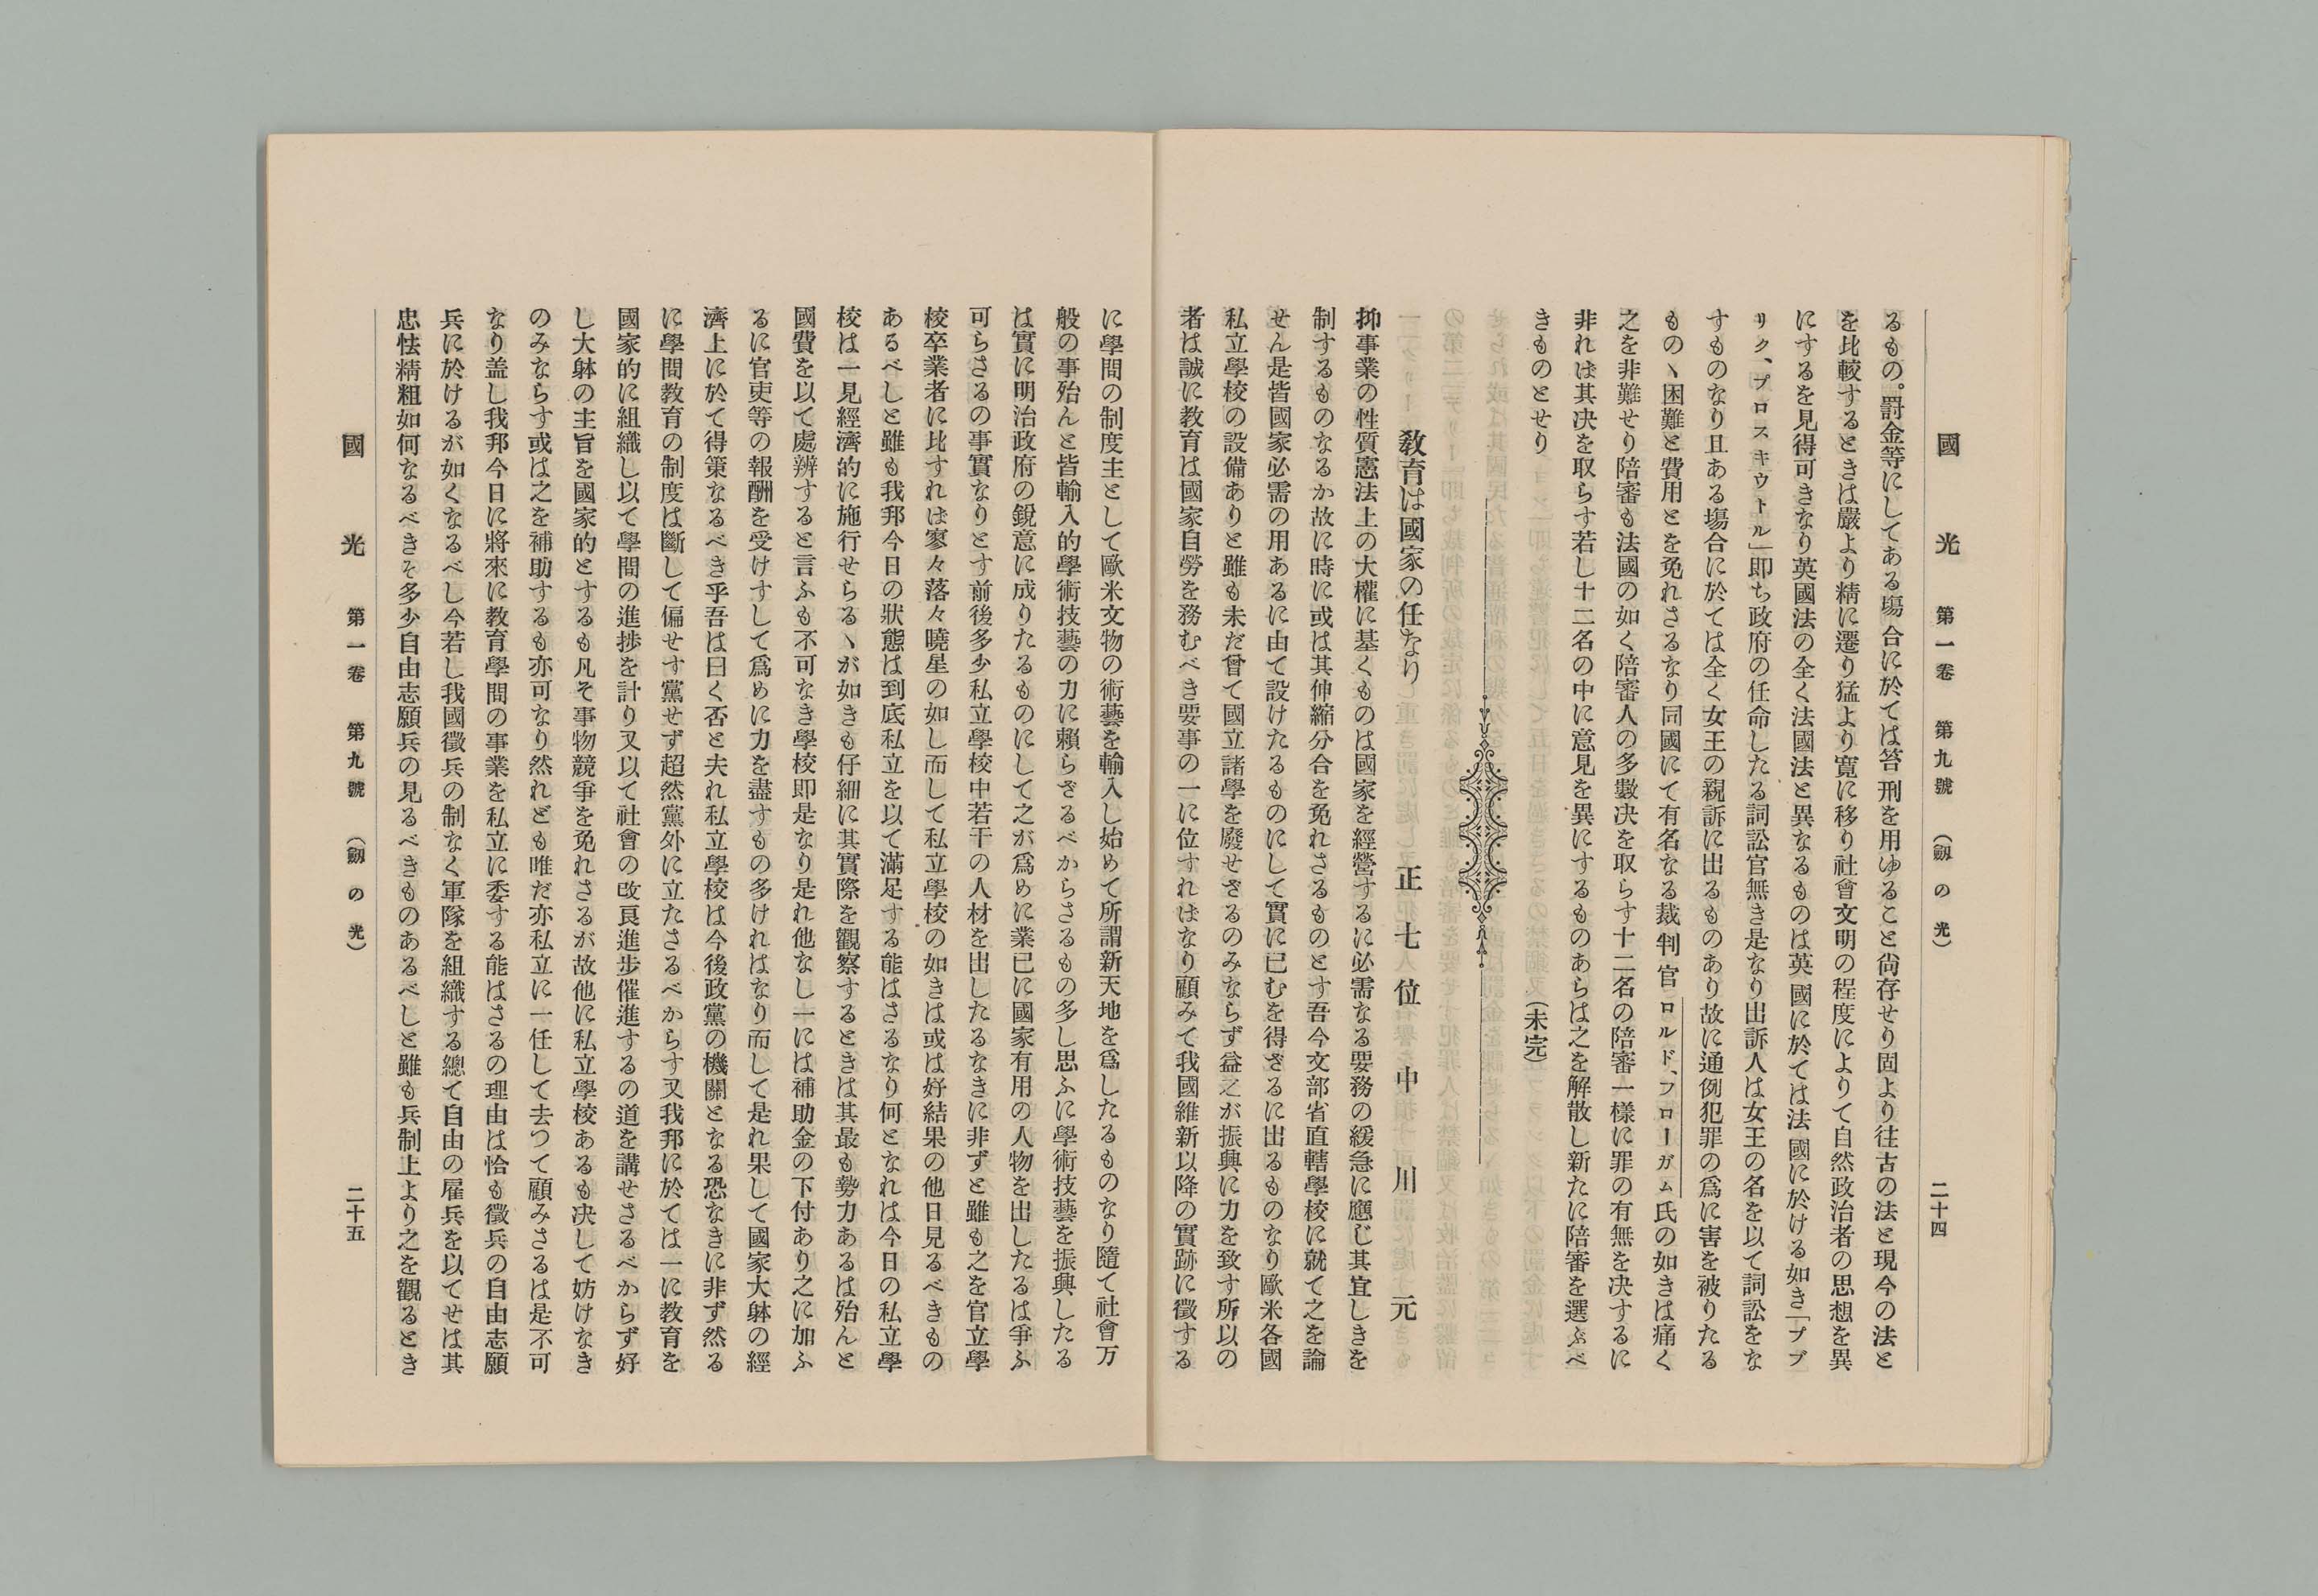 國光 第一卷 第九號 (劔の光) 二十四
るもの。罸金等にしてある塲合に於ては笞刑を用ゆること尙存せり固より往古の法と現今の法と
を比較するときは嚴より精に遷り猛より寛に移り社會文明の程度によりて自然政治者の思想を異
にするを見得可きなり英國法の全く法國法と異なるものは英國に於ては法國に於ける如き「プブ
リク、プロスキウトル」即ち政府の任命したる詞訟官無き是なり出訴人は女王の名を以て詞訟をな
すものなり且ある塲合に於ては全く女王の親訴に出るものあり故に通例犯罪の爲に害を被りたる
もの丶困難と費用とを免れさるなり同國にて有名なる裁判官ロルド、フローガム氏の如きは痛く
之を非難せり陪審も法國の如く陪審人の多數决を取らす十二名の陪審一樣に罪の有無を决するに
非れは其决を取らす若し十二名の中に意見を異にするものあらは之を解散し新たに陪審を選ぶべ
きものとせり (未完)
敎育は國家の任なり 正七位 中川元
抑事業の性質憲法上の大權に基くものは國家を經營するに必需なる要務の緩急に應じ其宜しきを
制するものなるか故に時に或は其伸縮分合を免れさるものとす吾今文部省直轄學校に就て之を論
せん是皆國家必需の用あるに由て設けたるものにして實に已むを得ざるに出るものなり歐米各國
私立學校の設備ありと雖も未だ曾て國立諸學を廢せざるのみならず益之が振興に力を致す所以の
者は誠に敎育は國家自勞を務むべき要事の一に位すればなり顧みて我國維新以降の實跡に徵する
に學問の制度主として歐米文物の術藝を輸入し始めて所謂新天地を爲したるものなり隨て社會万
般の事殆んと皆輸入的學術技藝の力に賴らざるべからさるもの多し思ふに學術技藝を振興したる
は實に明治政府の銳意に成りたるものにして之が爲めに業已に國家有用の人物を出したるは爭ふ
可らさるの事實なりとす前後多少私立學校中若干の人材を出したるなきに非ずと雖も之を官立學
校卒業者に比すれは寥々落々曉星の如し而して私立學校の如きは或は好結果の他日見るべきもの
あるべしと雖も我邦今日の狀態は到底私立を以て滿足する能はさるなり何となれは今日の私立學
校は一見經濟的に施行せらる丶が如きも仔細に其實際を觀察するときは其最も勢力あるは殆んと
國費を以て處辨すると言ふも不可なき學校即是なり是れ他なし一には補助金の下付あり之に加ふ
るに官吏等の報酬を受けすして爲めに力を盡すもの多けれはなり而して是れ果して國家大躰の經
濟上に於て得策なるべき乎吾は曰く否と夫れ私立學校は今後政黨の機關となる恐なきに非ず然る
に學問敎育の制度は斷して偏せす黨せず超然黨外に立たさるべからす又我邦に於ては一に敎育を
國家的に組織し以て學問の進捗を計り又以て社會の改良進步催進するの道を講せさるべからず好
し大躰の主旨を國家的とするも凡そ事物競爭を免れさるが故他に私立學校あるも决して妨けなき
のみならす或は之を補助するも亦可なり然れども唯だ亦私立に一任して去つて顧みさるは是不可
なり盖し我邦今日に將來に敎育學問の事業を私立に委する能はさるの理由は恰も徵兵の自由志願
兵に於けるが如くなるべし今若し我國徵兵の制なく軍隊を組織する總て自由の雇兵を以てせは其
忠怯精粗如何なるべきそ多少自由志願兵の見るべきものあるべしと雖も兵制上より之を觀るとき
國光 第一卷 第九號 (劔の光) 二十五